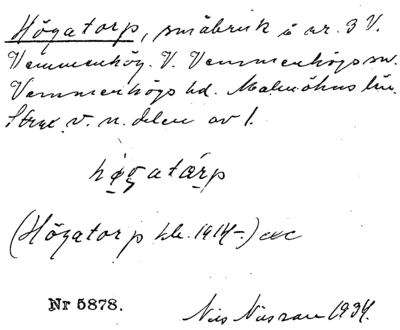 Högatorp, småbruk å nr. 3 V.
Vemmenhög. V. Vemmenhögs sn.
Vemmenhögs hd. Malmöhus län.
Strax v. n. delen av 1.
högatárp
(Högatorp kk. 1914-)
Nr 5878.
Nils 1934.